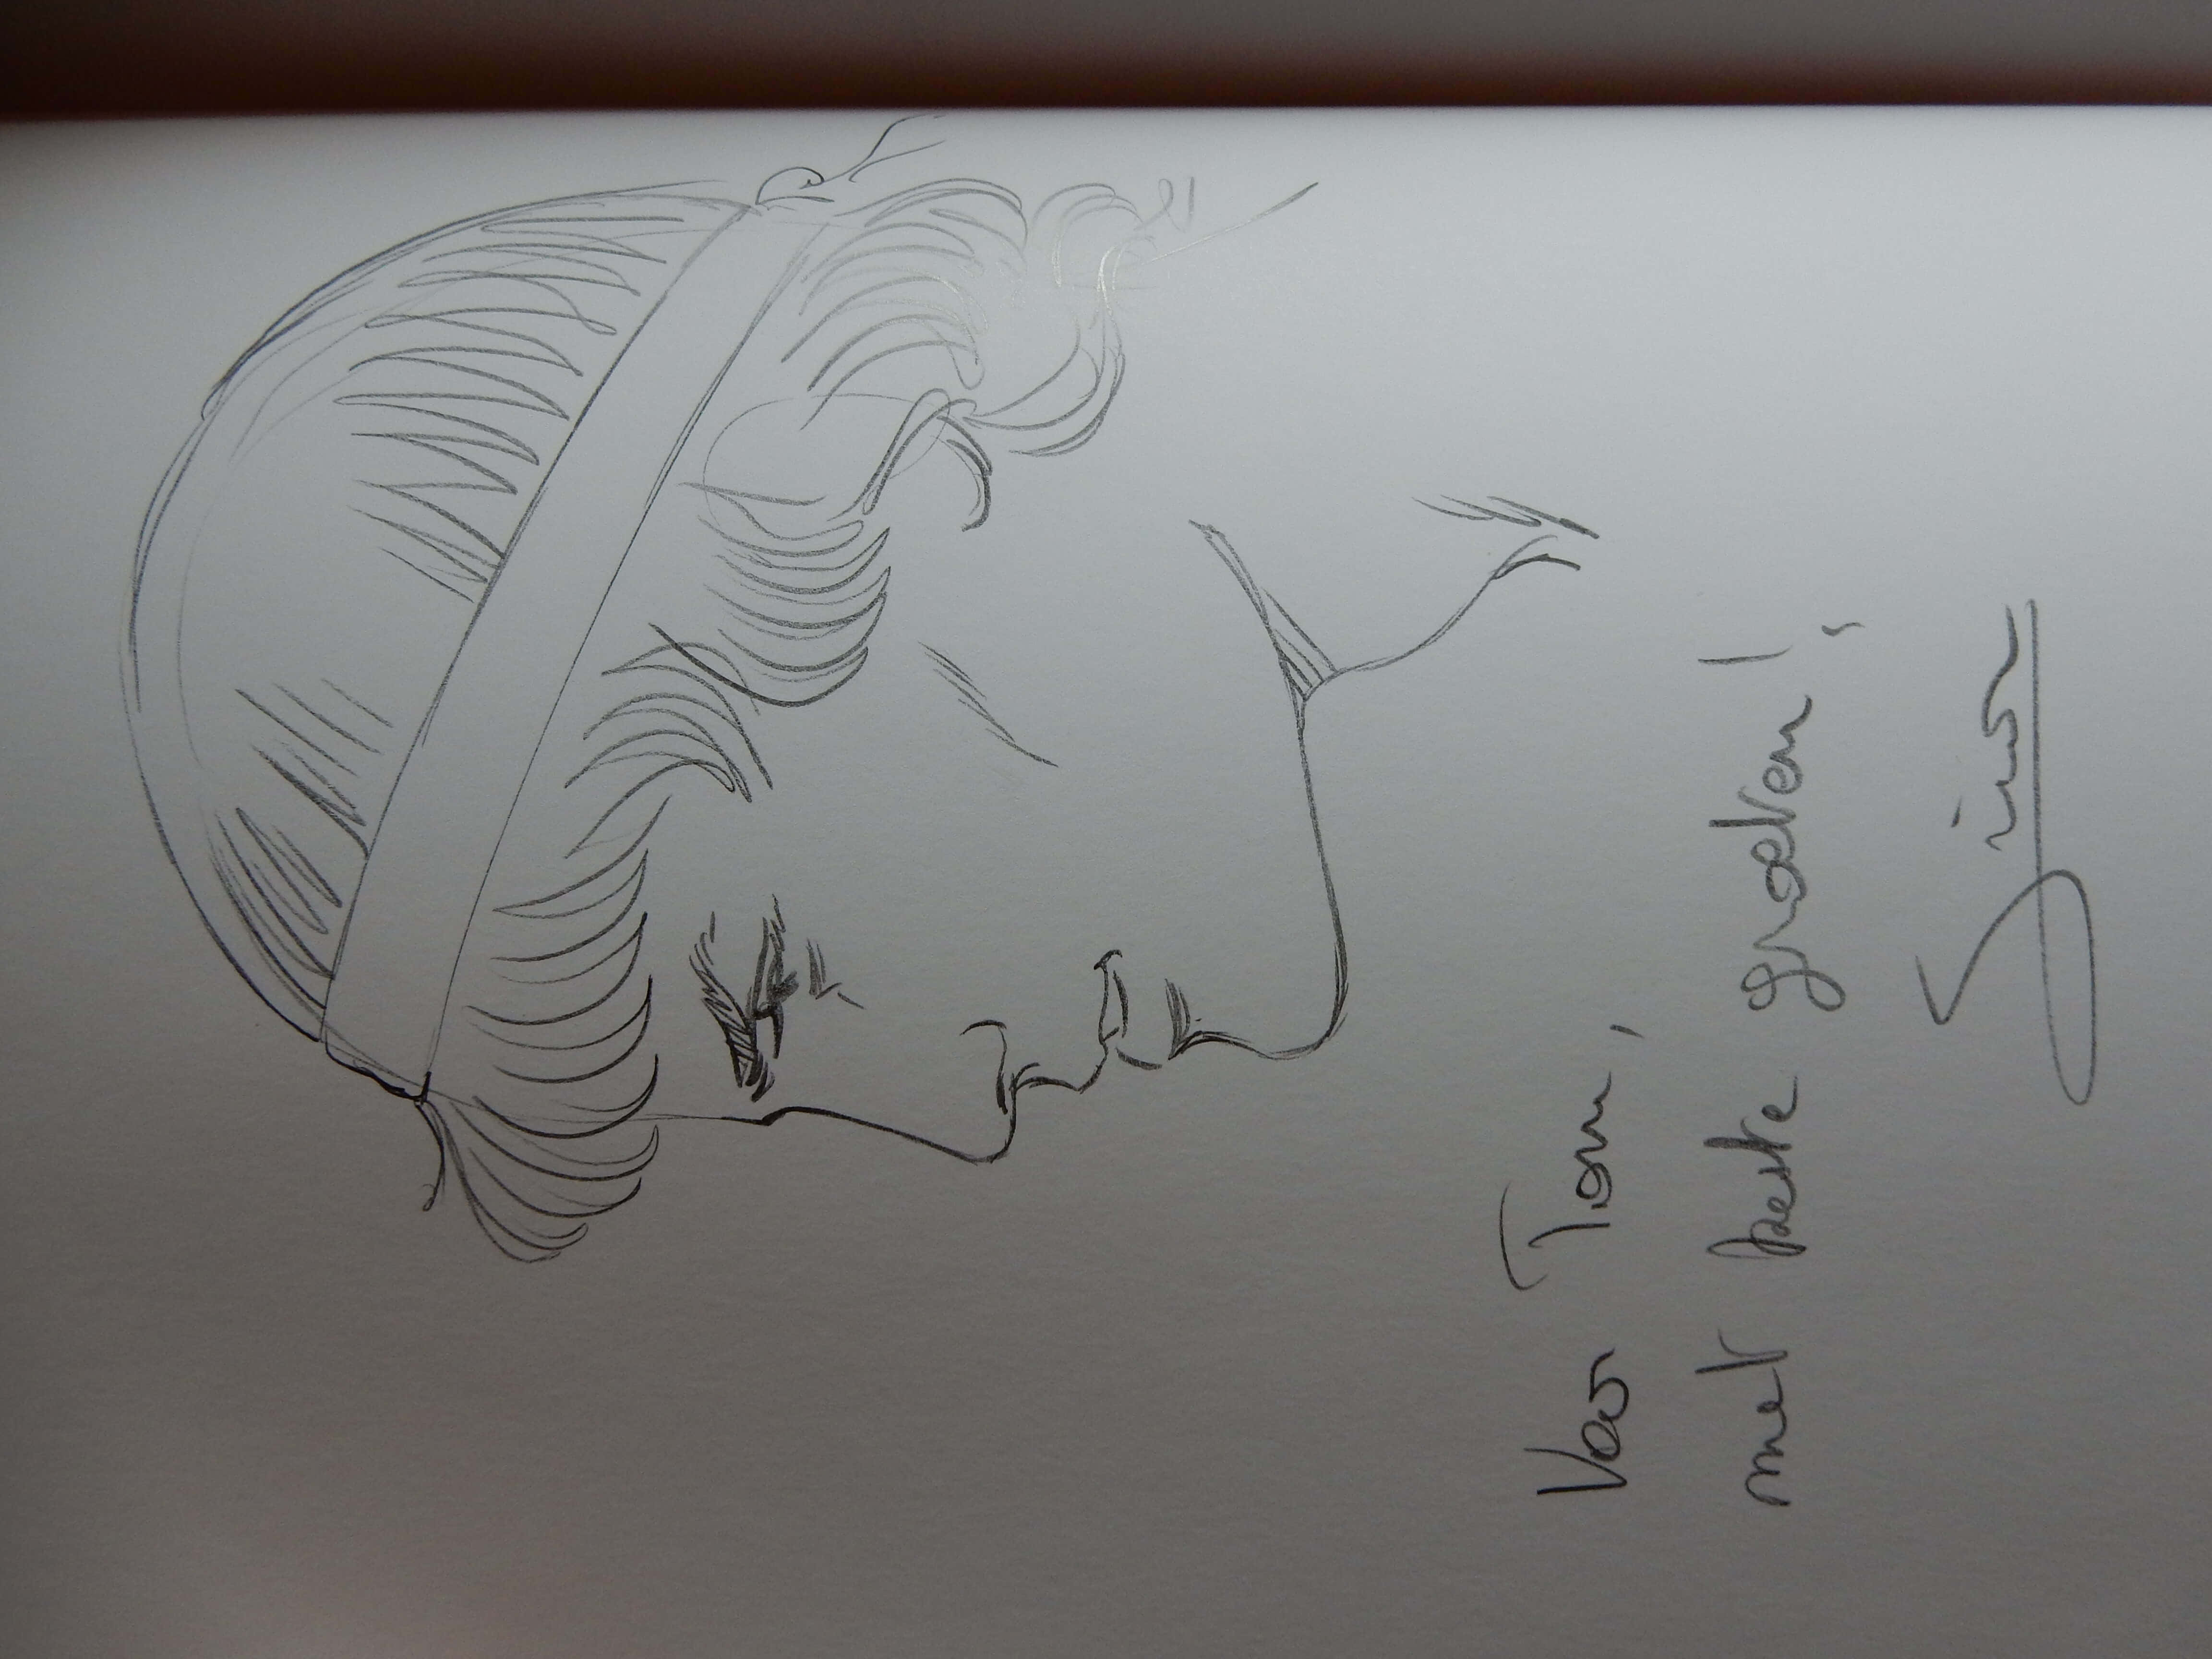 Voor Tom,
met beste groeten!